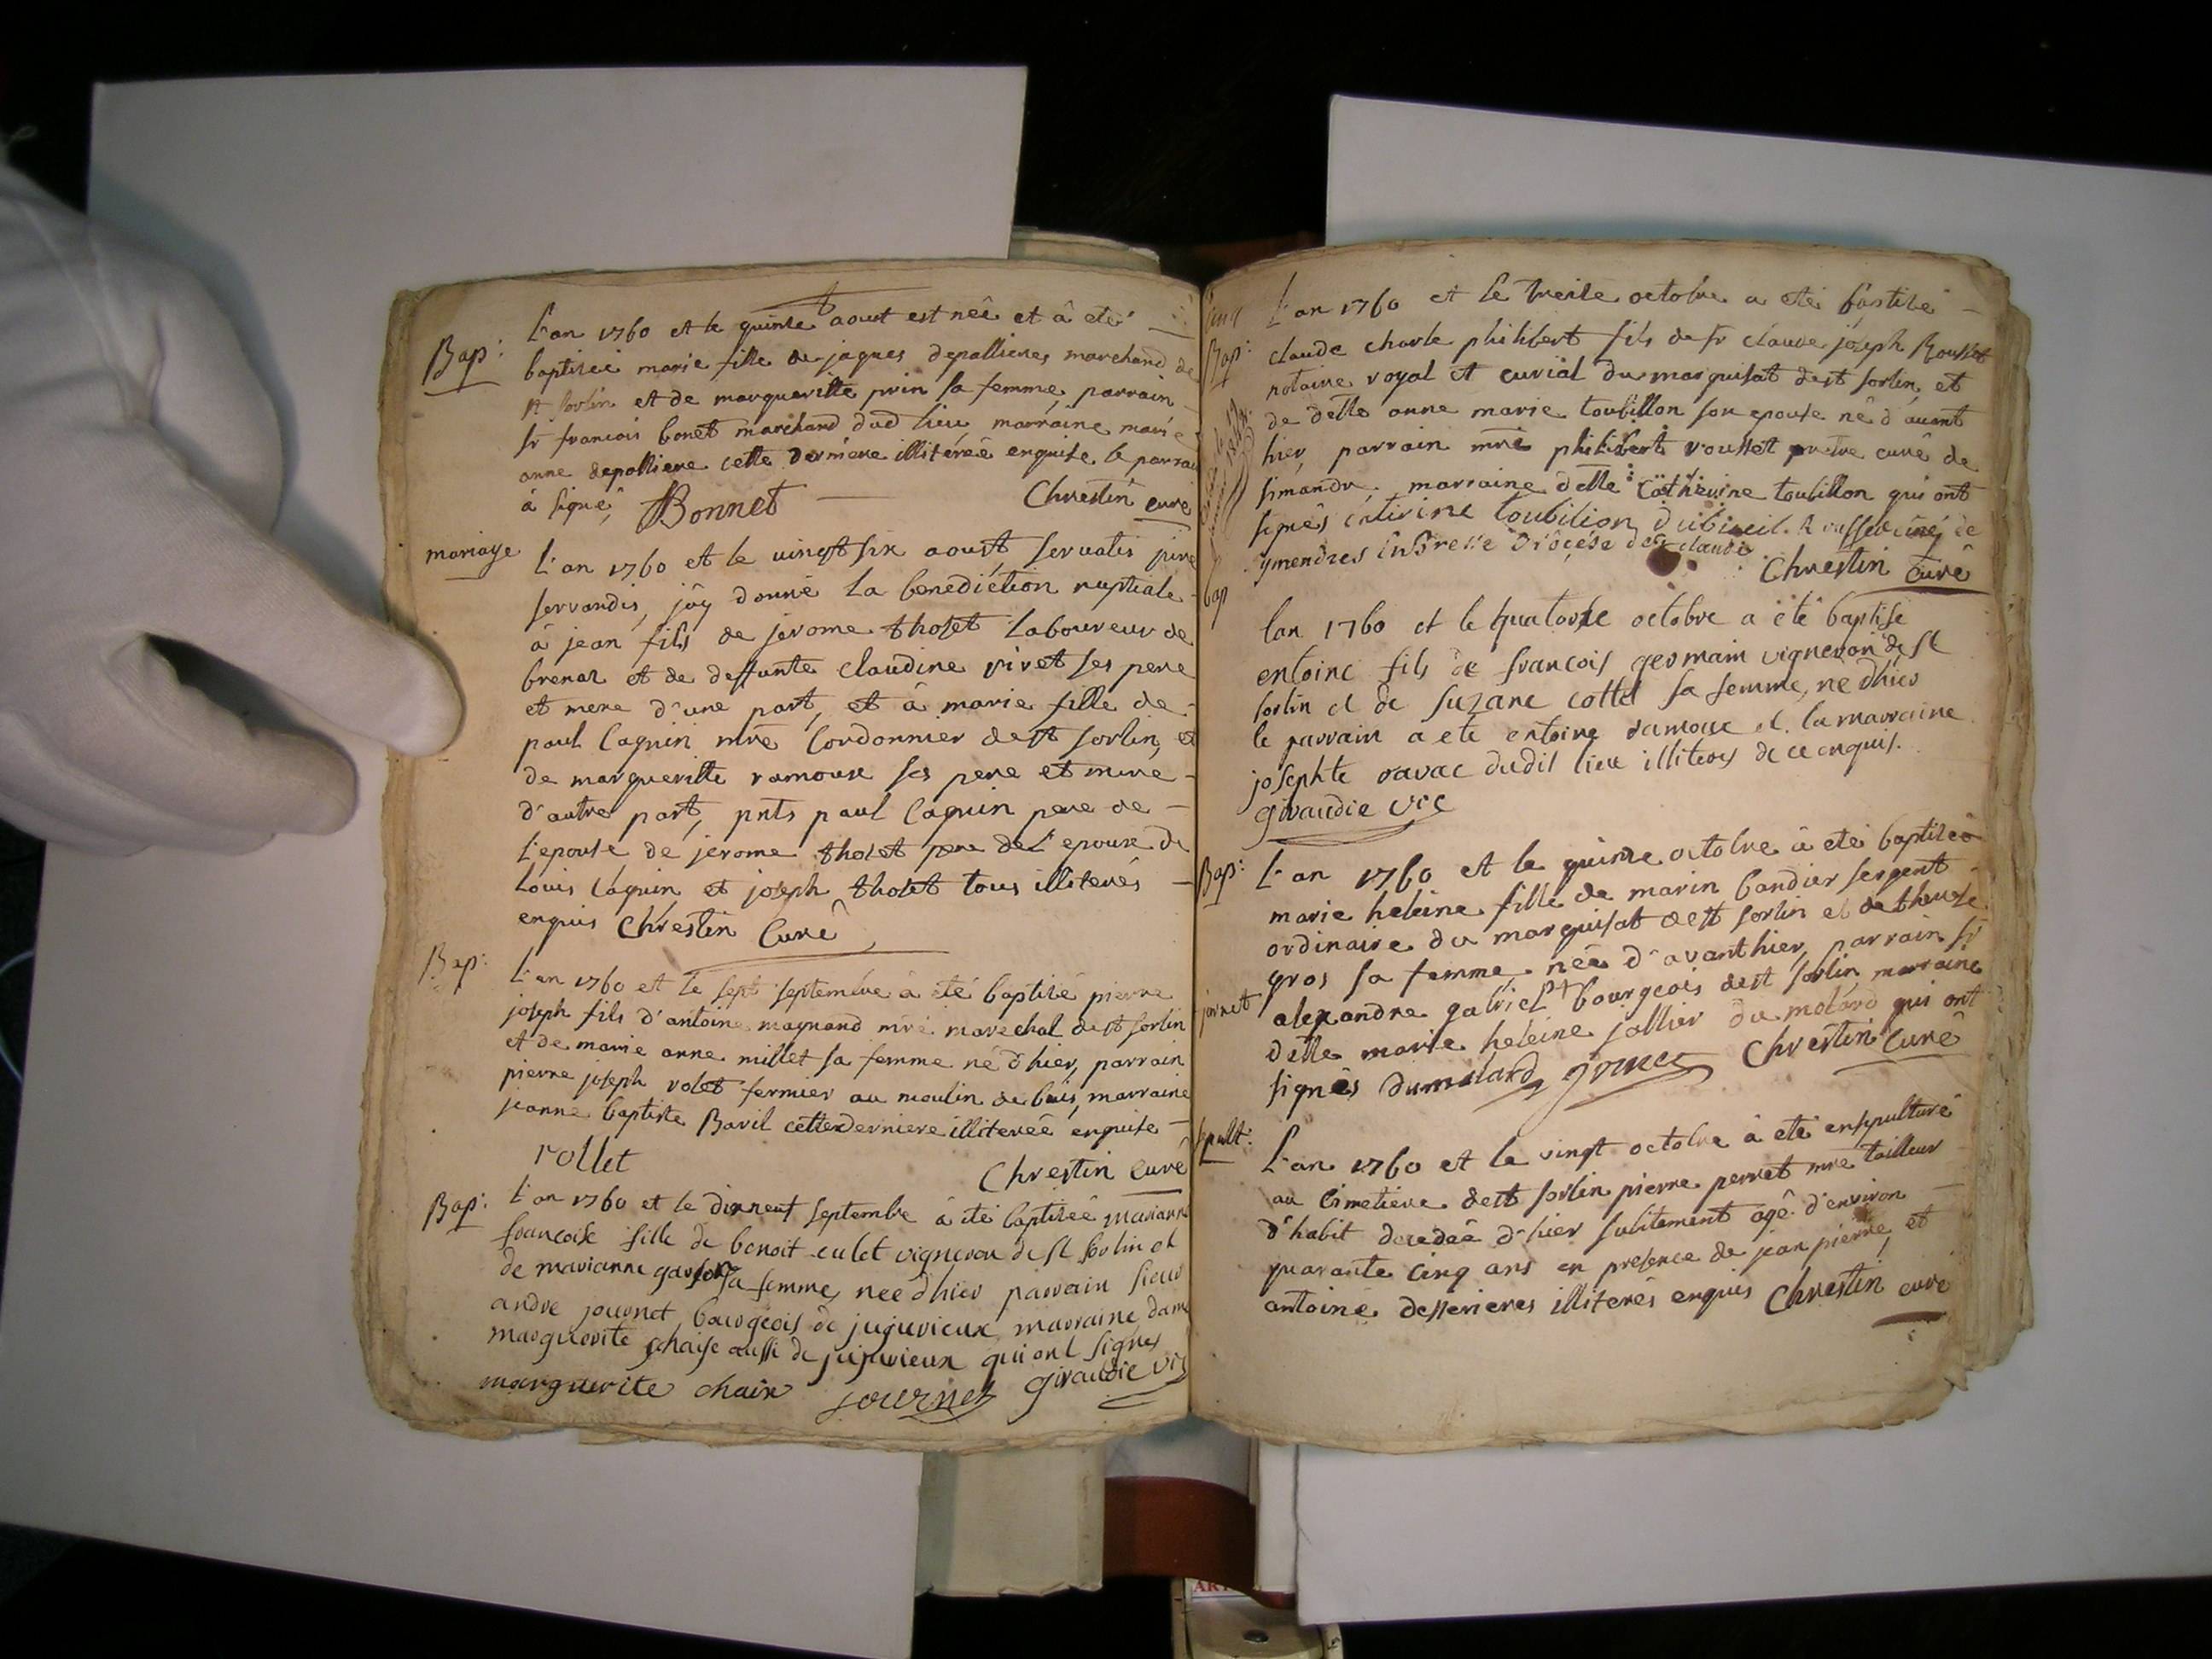 Bap:
L'an 1760 et le quinze aout est neê et à eté
baptiseé marie fille de jaques depallieres marchand de
st sorlin et de margueritte prin sa femme, parrain
sr francois bonet marchand dud lieu, marraine marie
anne depalliere cette derniere illitéréê enquise le parrai
à signé, Bonnet Chrestin curé
mariage
L'an 1760 et le uingt six aoust, servatis jure
servandis, j'ây donné la benediction nuptiale
à jean fils de jerome tholet laboureur de
brenaz et de deffunte claudine vivet ses pere
et mere d'une part, et à marie fille de
paul Caguin mre Cordonnier de st sorlin, et
de margueritte ramoux ses pere et mere
d'autre part, pnts paul Caguin pere de
l'epouse de jerome tholet pere de l'epoux de
Louis Caguin, et joseph tholet tous illiterés
enquis Chrestin Curé
Bap:
L'an 1760 et le sept septembre à eté baptisé pierre
joseph fils d'antoine magnand mre marechal de st sorlin
et de marie anne millet sa femme né d'hier, parrain
pierre joseph rolet fermier au moulin de buis, marraine
jeanne baptiste Baril cette derniere illitereé enquise
rollet Chrestin Curé
Bap:
L'an 1760 et le dixneuf septembre à été baptiseé marianne
francoise fille de benoit culet vigneron de st sorlin et
de marianne sa femme, neé d'hier parrain sieur
andre journet bourgeois de jujurieux, marraine dame
marguerite chaise aussi de jujurieux qui ont signes
marguerite chaix journet Giraudie vic
L'an 1760 et le treize octobre a eté baptisé
Bap:
claude charle philibert fils de sr claude joseph Rousset
notaire royal et curial du marquisat de st sorlin, et
de delle anne marie toubillon son epouse né d'auant
hier, parrain mre philibert rousset pretre curé de
simandre, marraine delle catherine toubillon qui ont
signés catirine toubilion Rousset curé de
ymendres en Bresse Diocése de st claude
Chrestin Curé
bap
lan 1760 et le quatorze octobre a été baptise
entoine fils de francois germain vigneron de st
sorlin et de suzane cottet sa femme, né dhier
le parrain a eté entoine ramoux et la marraine
josephte ravac dudit lieu illiteres de ce enquis.
Giraudie vic
Bap:
L'an 1760 et le quinze octobre à eté baptiseé
marie heleine fille de marin bandier sergent
ordinaire du marquisat de st sorlin et de therese
gros sa femme, neé d'avanthier, parrain sr
jornet
alexandre gabriel bourgeois de st sorlin, marraine
delle marie heleine jallier du molard qui ont
signés dumolard jornet Chrestin Curé
sepult:
L'an 1760 et le vingt octobre à eté ensepulturé
au Cimetiere de st sorlin pierre perret mre tailleur
d'habit decedeé d'hier subitement agé d'environ
quarante cinq ans en presence de jean pierre, et
antoine desserieres illiterés enquis Chrestin curé